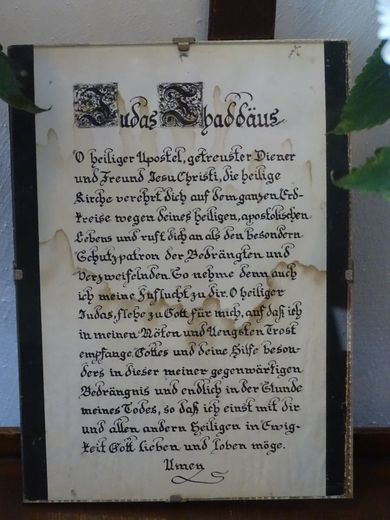 Judas Thaddäus
O heiliger Apostel, getreuster Diener
und Freund Jesu Christi, die heilige
Kirche verehrt dich auf dem ganzen Erd-
kreise wegen deines heiligen, apostolischen
Lebens und ruft dich an als den besondern
Schutzpatron der Bedrängten und
Verzweifelnden. So nehme denn auch
ich meine Zuflucht zu dir. O heiliger
Judas, flehe zu Gott für mich, auf daß ich
in meinen Nöten und Aengsten Trost
empfange, Gottes und deine Hilfe beson-
ders in dieser meiner gegenwärtigen
Bedrängnis und endlich in der Stunde
meines Todes, so daß ich einst mit dir
und allen andern Heiligen in Ewig-
keit Gott lieben und loben möge.
Amen